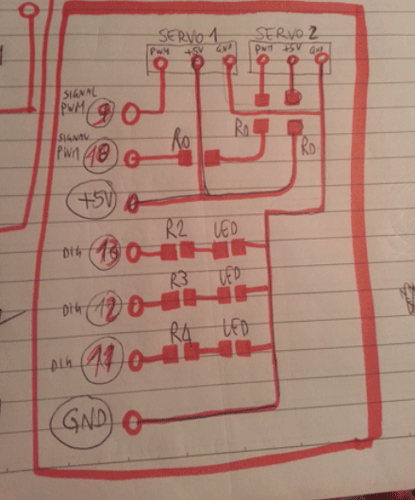 SERVO 1 SERVO 2
PWM +5V GND PWM +5V GND
SIGNAL
PWM 9
SIGNAL
PWM 10 R0 R0 R0
+5V
R2 LED
DIG 13
R3 LED
DIG 12
R4 LED
DIG 11
GND